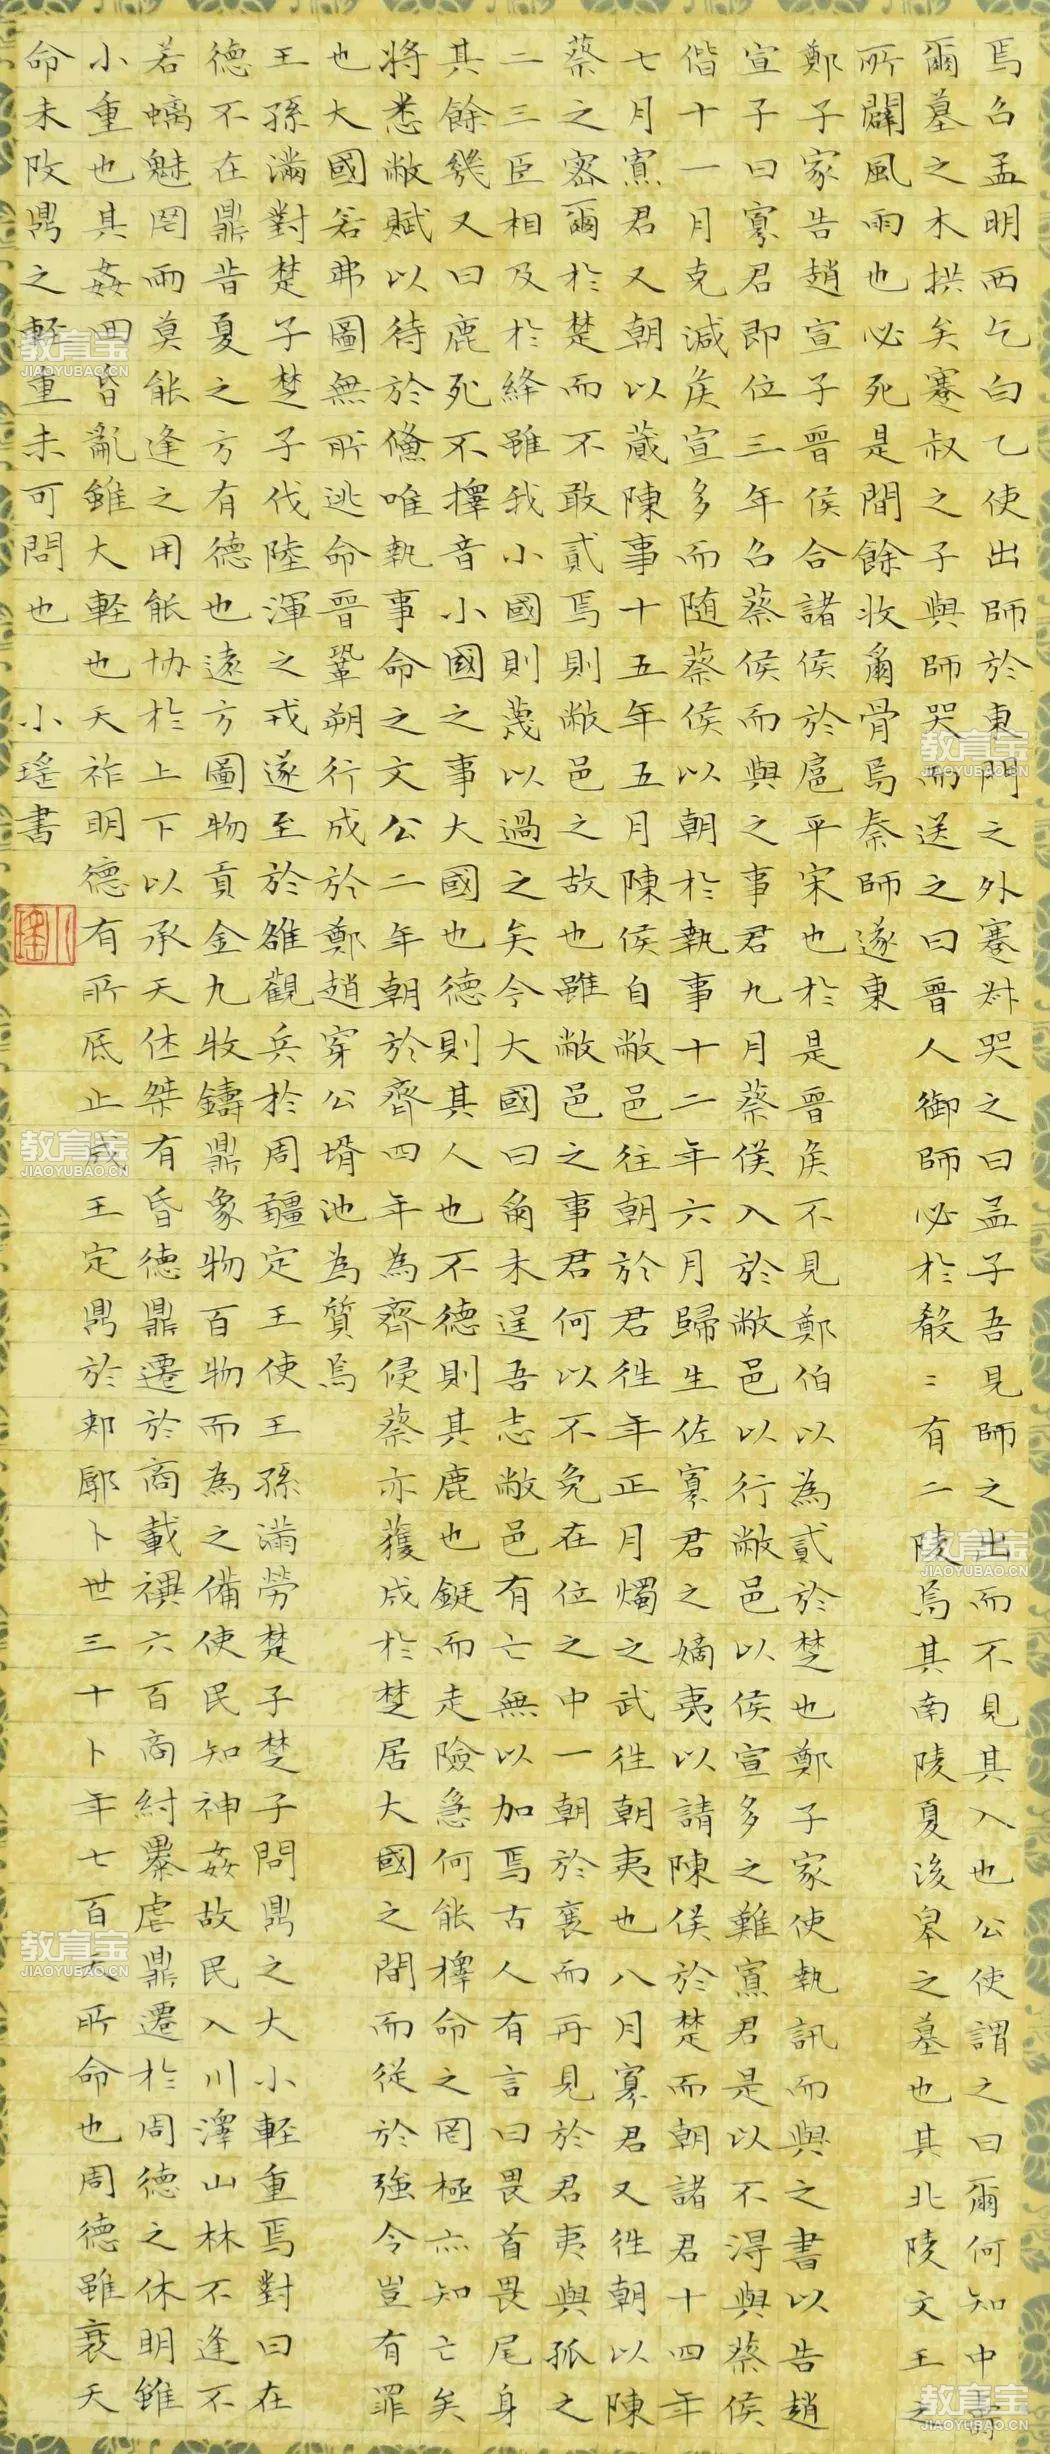 焉召孟明西乞白乙使出師於東門之外蹇叔哭之曰孟子吾見師之出而不見其入也公使謂之曰爾何知中壽
爾墓之木拱矣蹇叔之子與師哭而送之曰晉人御師必於殽〻有二陵焉其南陵夏後皋之墓也其北陵文王之
所闢風雨也必死是間餘收爾骨焉秦師遂東
鄭子家告趙宣子晉侯合諸侯於扈平宋也於是晉侯不見鄭伯以為貳於楚也鄭子家使執訊而與之書以告趙
宣子曰寡君即位三年召蔡侯而與之事君九月蔡侯入於敝邑以行敝邑以侯宣多之難寡君是以不得與蔡侯
偕十一月克減侯宣多而随蔡侯以朝於執事十二年六月歸生佐寡君之嫡夷以請陳侯於楚而朝諸君十四年
七月寡君又朝以蕆陳事十五年五月陳侯自敝邑往朝於君往年正月燭之武往朝夷也八月寡君又往朝以陳
蔡之密爾於楚而不敢貳焉則敝邑之故也雖敝邑之事君何以不免在位之中一朝於襄而再見於君夷與孤之
二三臣相及於絳雖我小國則蔑以過之矣今大國曰爾未逞吾志敝邑有亡無以加焉古人有言曰畏首畏尾身
其餘幾又曰鹿死不擇音小國之事大國也德則其人也不德則其鹿也鋌而走險急何能擇命之罔極亦知亡矣
將悉敝賦以待於儵唯執事命之文公二年朝於齊四年為齊侵蔡亦獲成於楚居大國之間而從於強令豈有罪
也大國若弗圖無所逃命晉鞏朔行成於鄭趙穿公壻池為質焉
王孫滿對楚子楚子伐陸渾之戎遂至於雒觀兵於周疆定王使王孫滿勞楚子楚子問鼎之大小輕重焉對曰在
德不在鼎昔夏之方有德也遠方圖物貢金九牧鑄鼎象物百物而為之備使民知神姦故民入川澤山林不逢不
若螭魅罔兩莫能逢之用能協於上下以承天休桀有昏德鼎遷於商載禩六百商紂暴虐鼎遷於周德之休明雖
小重也其姦回昏亂雖大輕也天祚明德有所厎止成王定鼎於郟鄏卜世三十卜年七百天所命也周德雖衰天
命未改鼎之輕重未可問也 小瑤書
小瑤
教育宝
JIAOYUBAO.CN
教育宝
JIAOYUBAO.CN
教育宝
JIAOYUBAO.CN
教育宝
JIAOYUBAO.CN
教育宝
JIAOYUBAO.CN
教育宝
JIAOYUBAO.CN
教育宝
JIAOYUBAO.CN